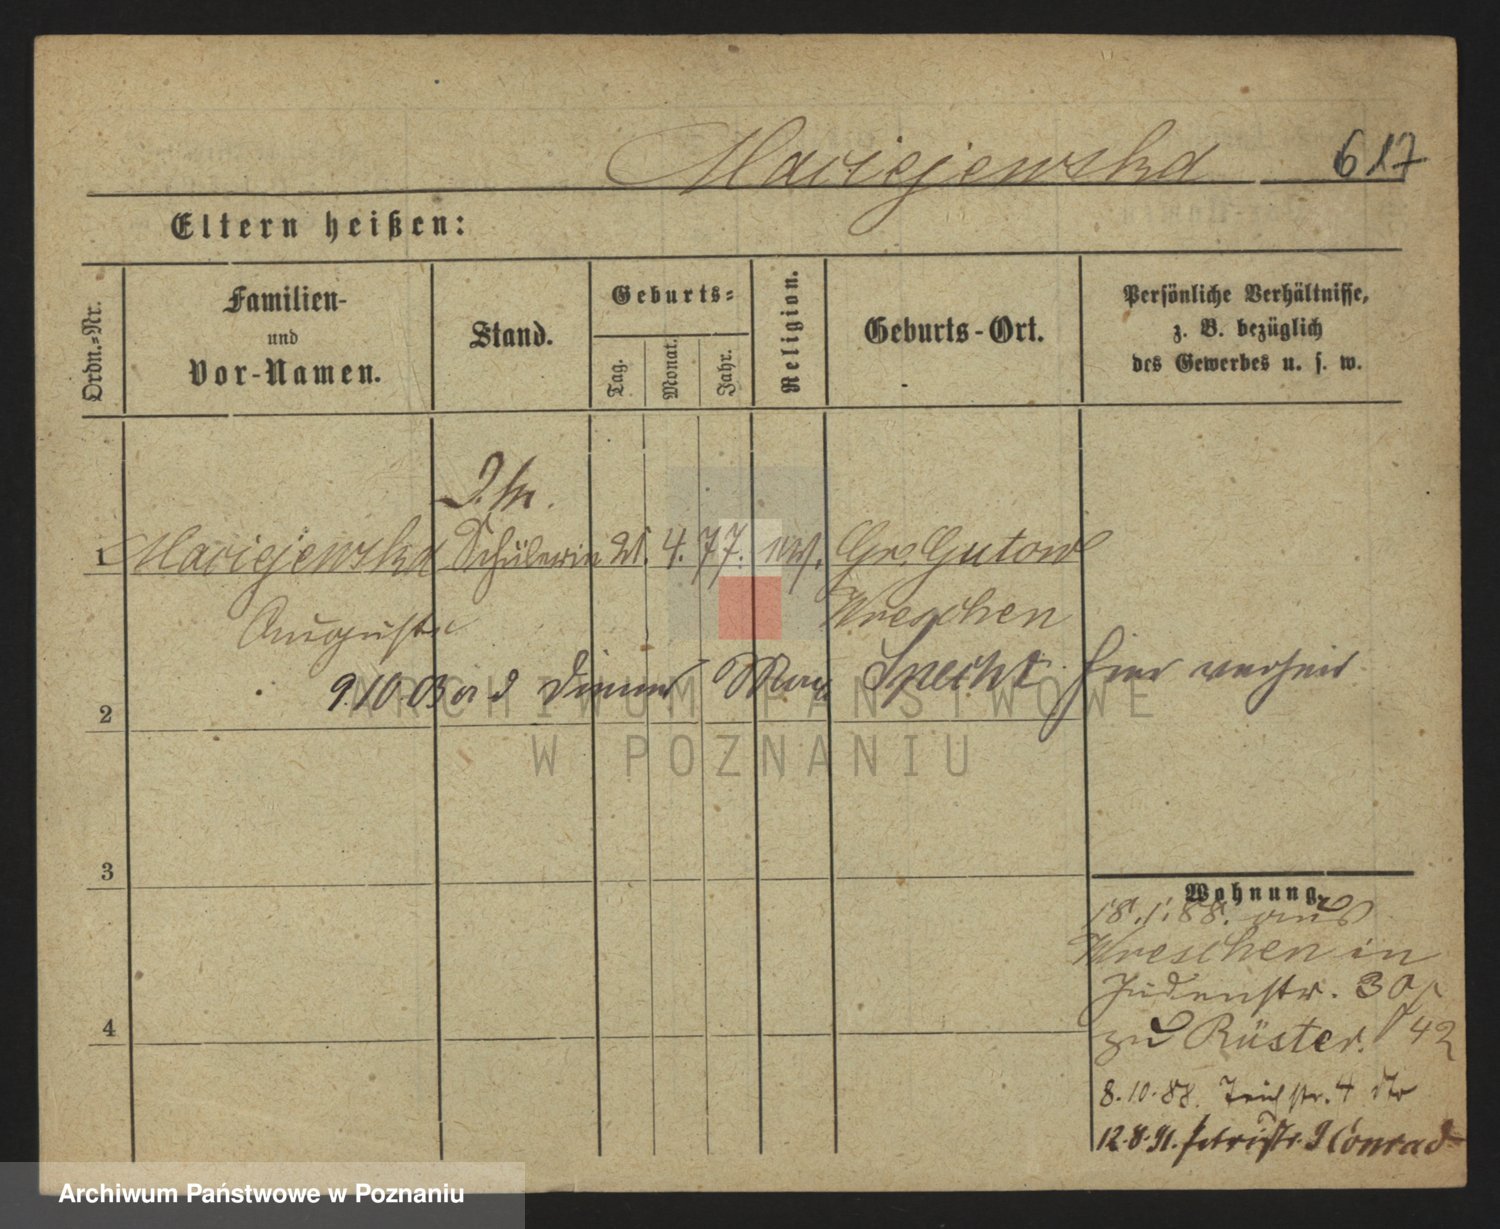 Maciejewska 617
Eltern heißen:
Ordn.-Nr.
Familien-
und
Vor-Namen.
Stand.
Geburts-
Tag.
Monat.
Jahr.
Religion.
Geburts-Ort.
Persönliche Verhältnisse,
z. B. bezüglich
des Gewerbes u. s. w.
1 Maciejewska Schülerin 21. 4. 77. Gr. Gutow
Auguste Wreschen
9.10.03 Diener Max Specht hier verheir
2
ARCHIWUM PAŃSTWOWE
W POZNANIU
3
Wohnung.
18.1.88. aus
Wreschen in
Judenstr. 30
zu Rüster. 42
4
8.10.88. Teichstr. 4 dto
12.8.91. Petristr. 9 Conrad
Archiwum Państwowe w Poznaniu